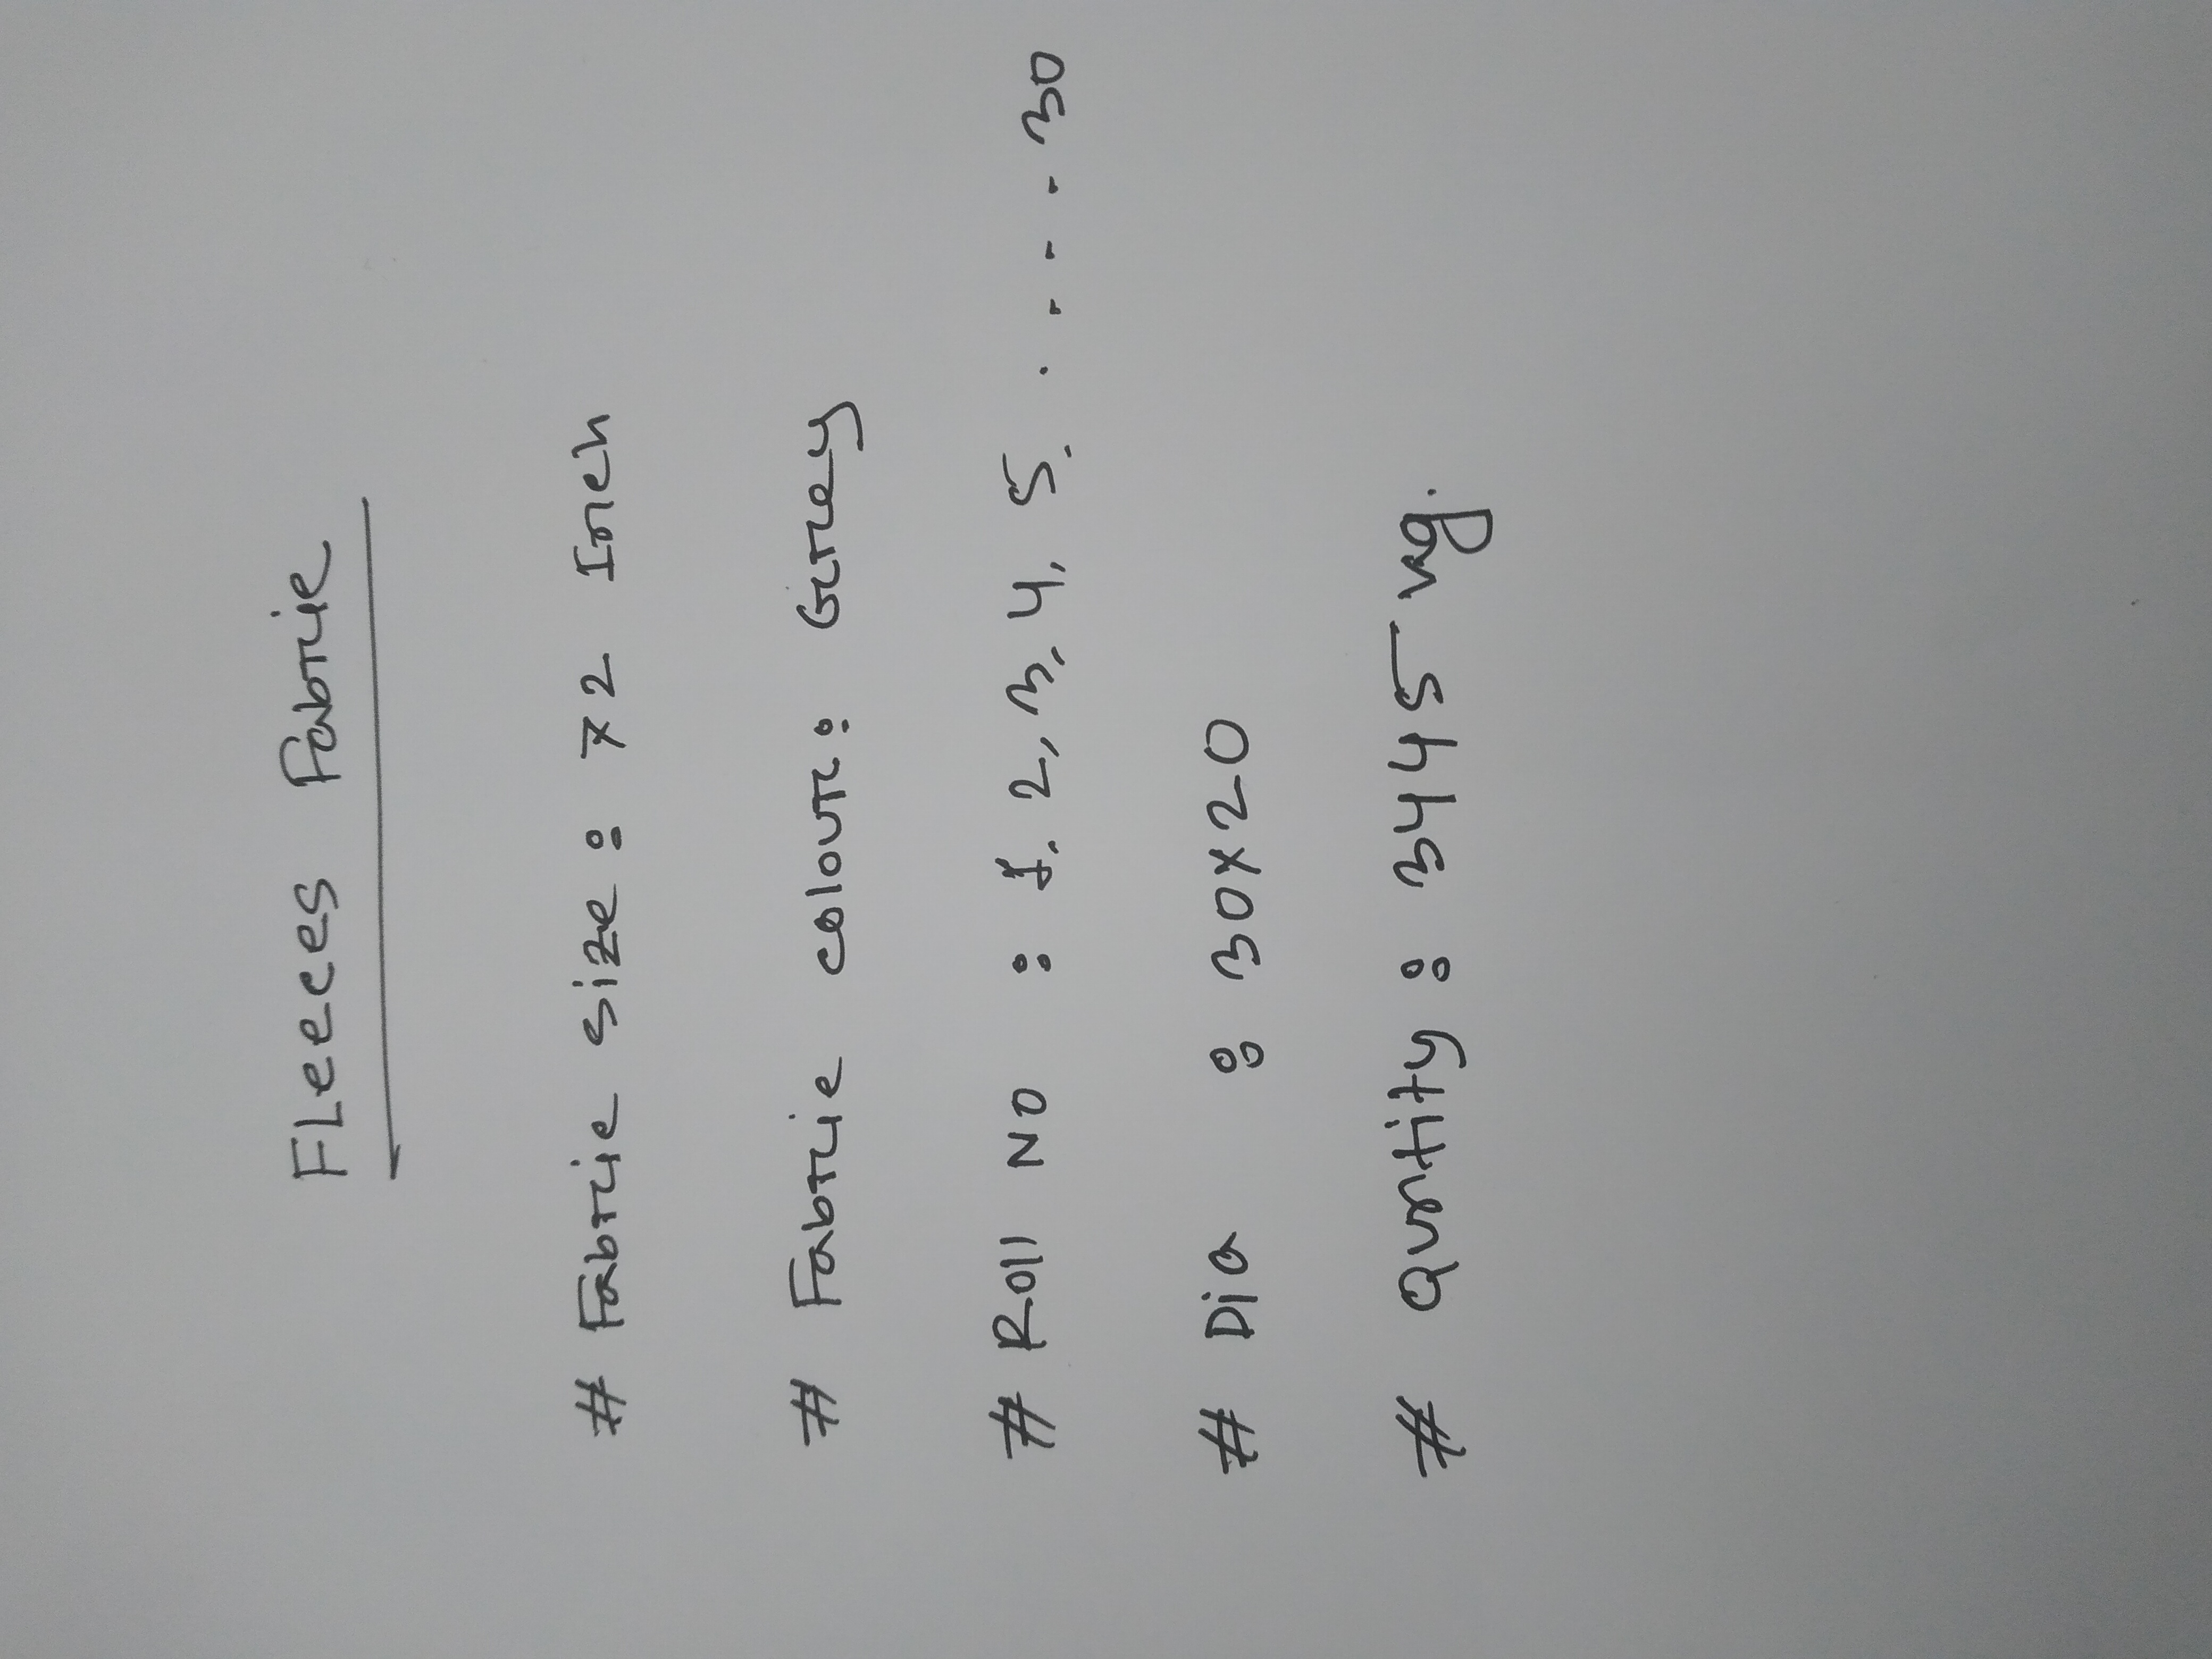 FLeeces Fabric
# Fabric Size : 72 Inch
# Fabric colour : Grey
# Roll No : 1. 2, 3, 4, 5. . - - - 30
# Dia : 30x20
# Quntity : 3445 kg.